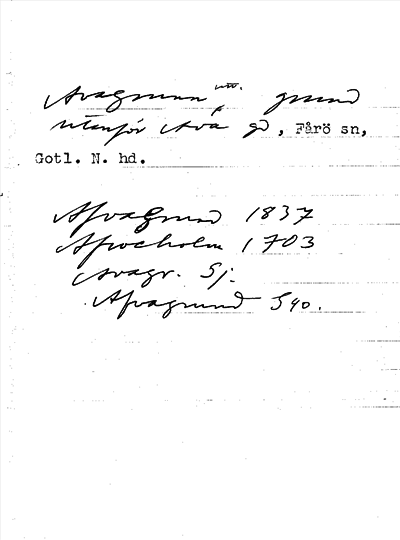 Avagrunn, grund
utanför Ava gd, Fårö sn,
Gotl. N. hd.
Afvagrund 1837
Afwocholm 1703
Avagr. Sj.
Afvagrund S40.